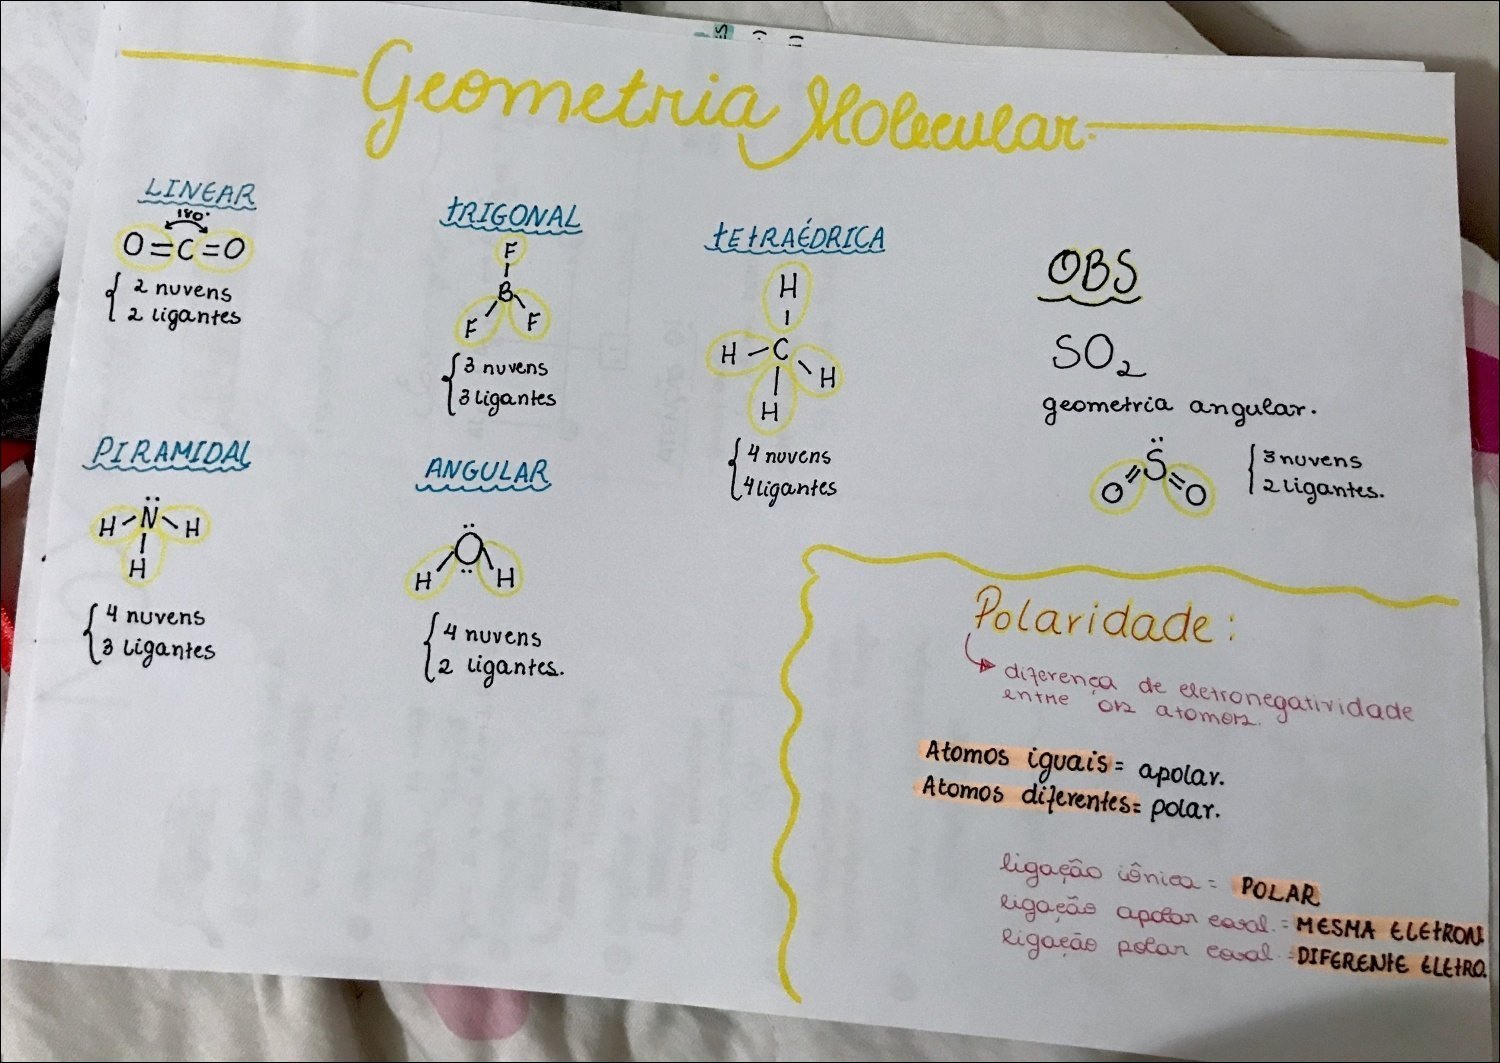 Geometria Molecular
LINEAR
180°
O=C=O
2 nuvens
2 ligantes
TRIGONAL
F
B
F F
3 nuvens
3 ligantes
TETRAÉDRICA
H
H - C
H
H
4 nuvens
4 ligantes
OBS
SO₂
geometria angular.
S
O O
3 nuvens
2 ligantes.
PIRAMIDAL
H - N - H
H
4 nuvens
3 ligantes
ANGULAR
O
H H
4 nuvens
2 ligantes.
Polaridade:
diferença de eletronegatividade
entre os atomos.
Atomos iguais = apolar.
Atomos diferentes = polar.
ligação iônica = POLAR
ligação apolar coval. = MESMA ELETRON.
ligação polar coval = DIFERENTE ELETRO.